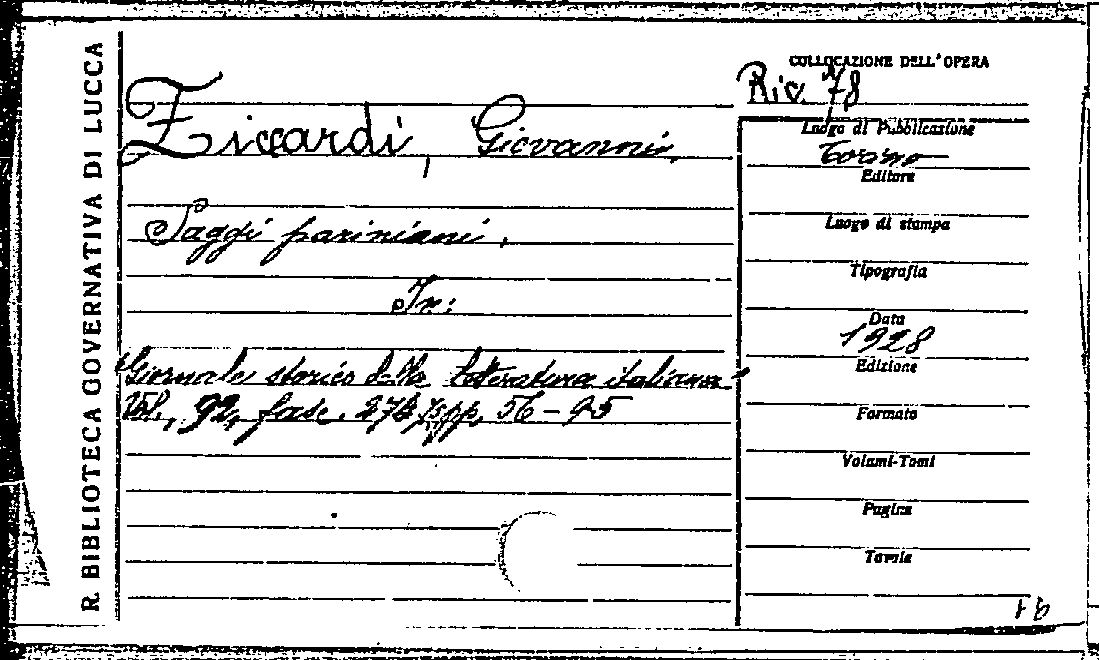 R. BIBLIOTECA GOVERNATIVA DI LUCCA
Ziccardi, Giovanni.
Saggi pariniani.
In:
"Giornale storico della letteratura italiana"
Vol. 92, fasc. pp. 56-95
COLLOCAZIONE DELL'OPERA
Riv. 78
Luogo di Pubblicazione
Torino
Editore
Luogo di stampa
Tipografia
Data
1928
Edizione
Formato
Volumi-Tomi
Pagine
Tavole